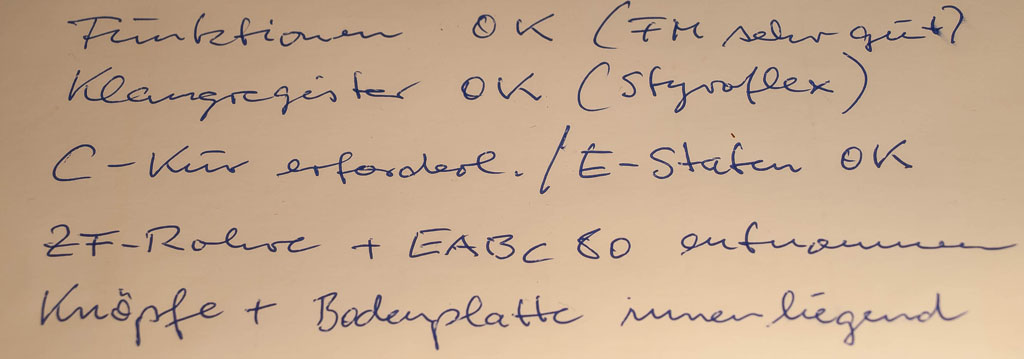 Funktionen OK (FM sehr gut)
Klangregister OK (Styroflex)
C-Kur erforderl. / E-Staten OK
ZF-Rohre + EABC 80 entnommen
Knöpfe + Bodenplatte innen liegend